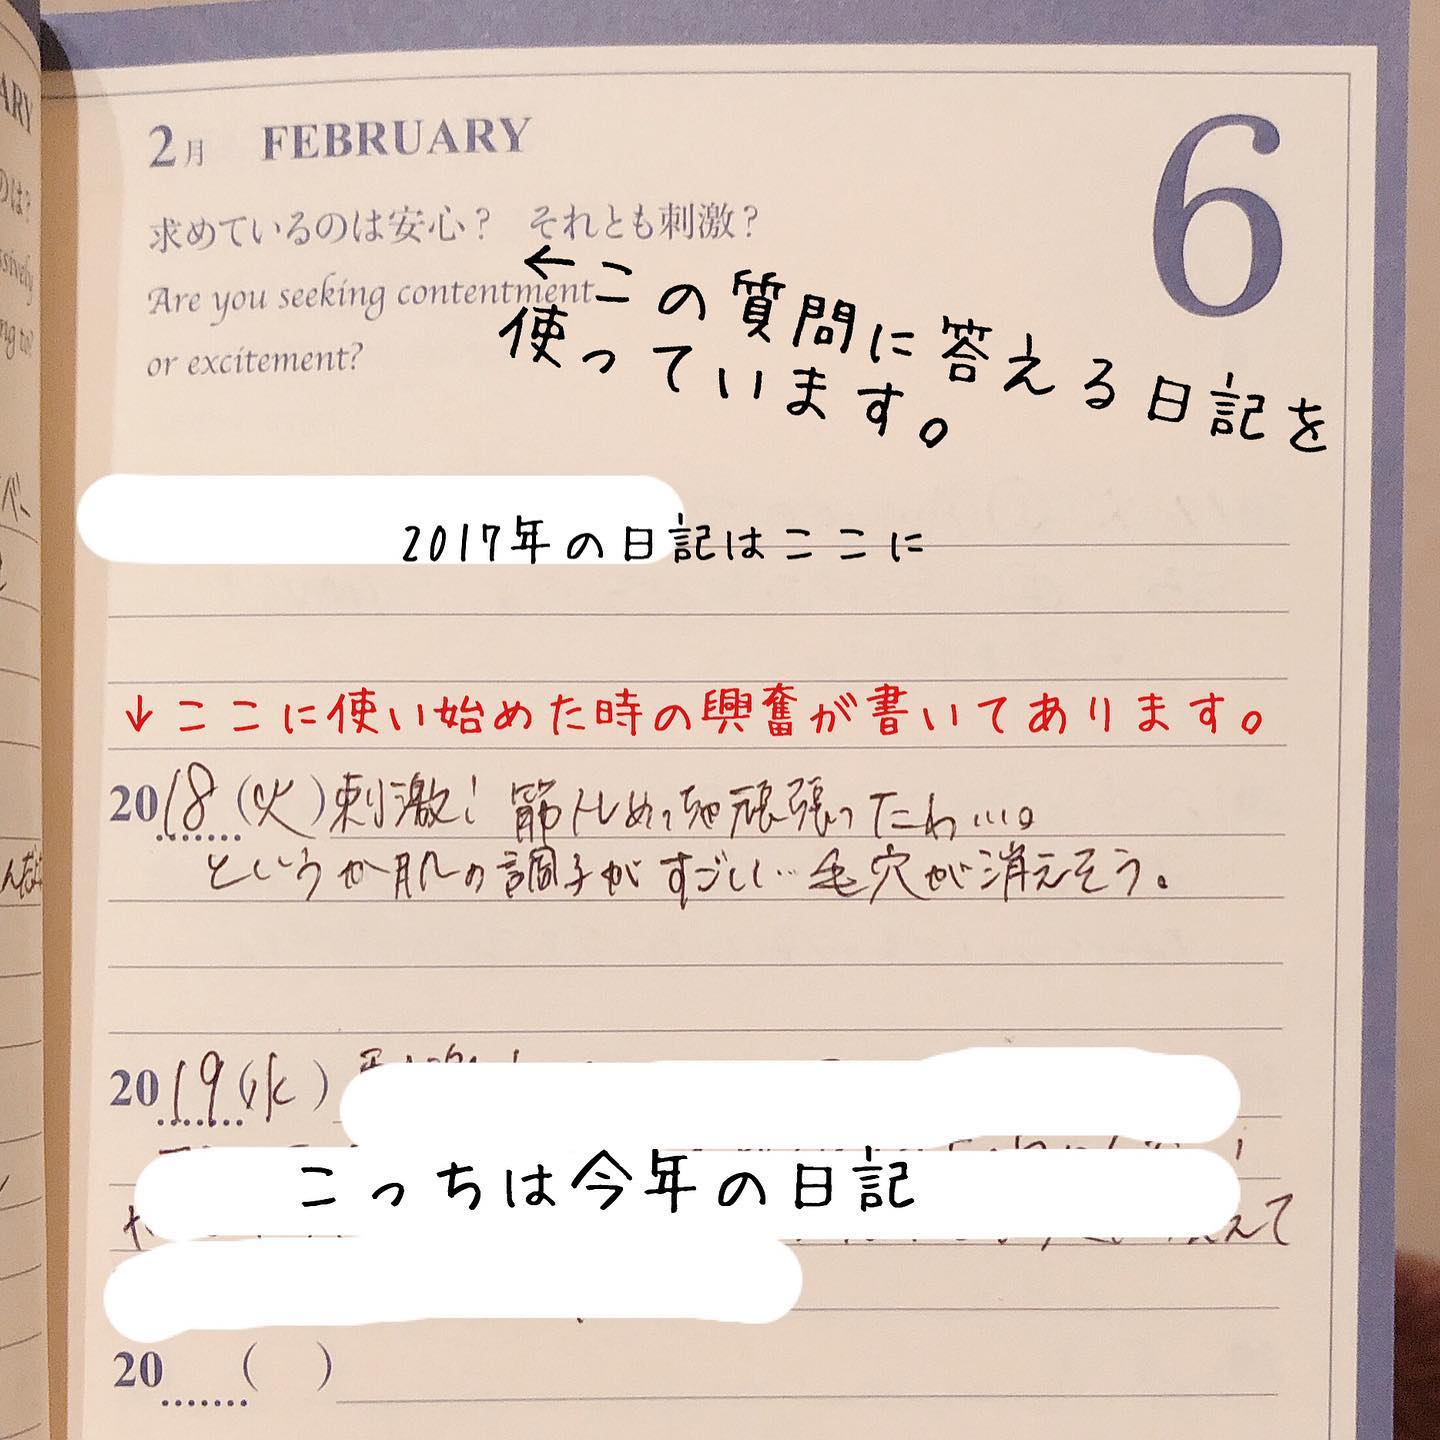 2月 FEBRUARY
6
求めているのは安心？ それとも刺激？
Are you seeking contentment
or excitement?
←この質問に答える日記を
使っています。
2017年の日記はここに
↓ここに使い始めた時の興奮が書いてあります。
2018(火)刺激！筋トレめっちゃ頑張ったわ…。
というか肌の調子がすごい…毛穴が消えそう。
2019(水)
こっちは今年の日記
えて
20 ( )
ARY
のは?
ssively
ng to?